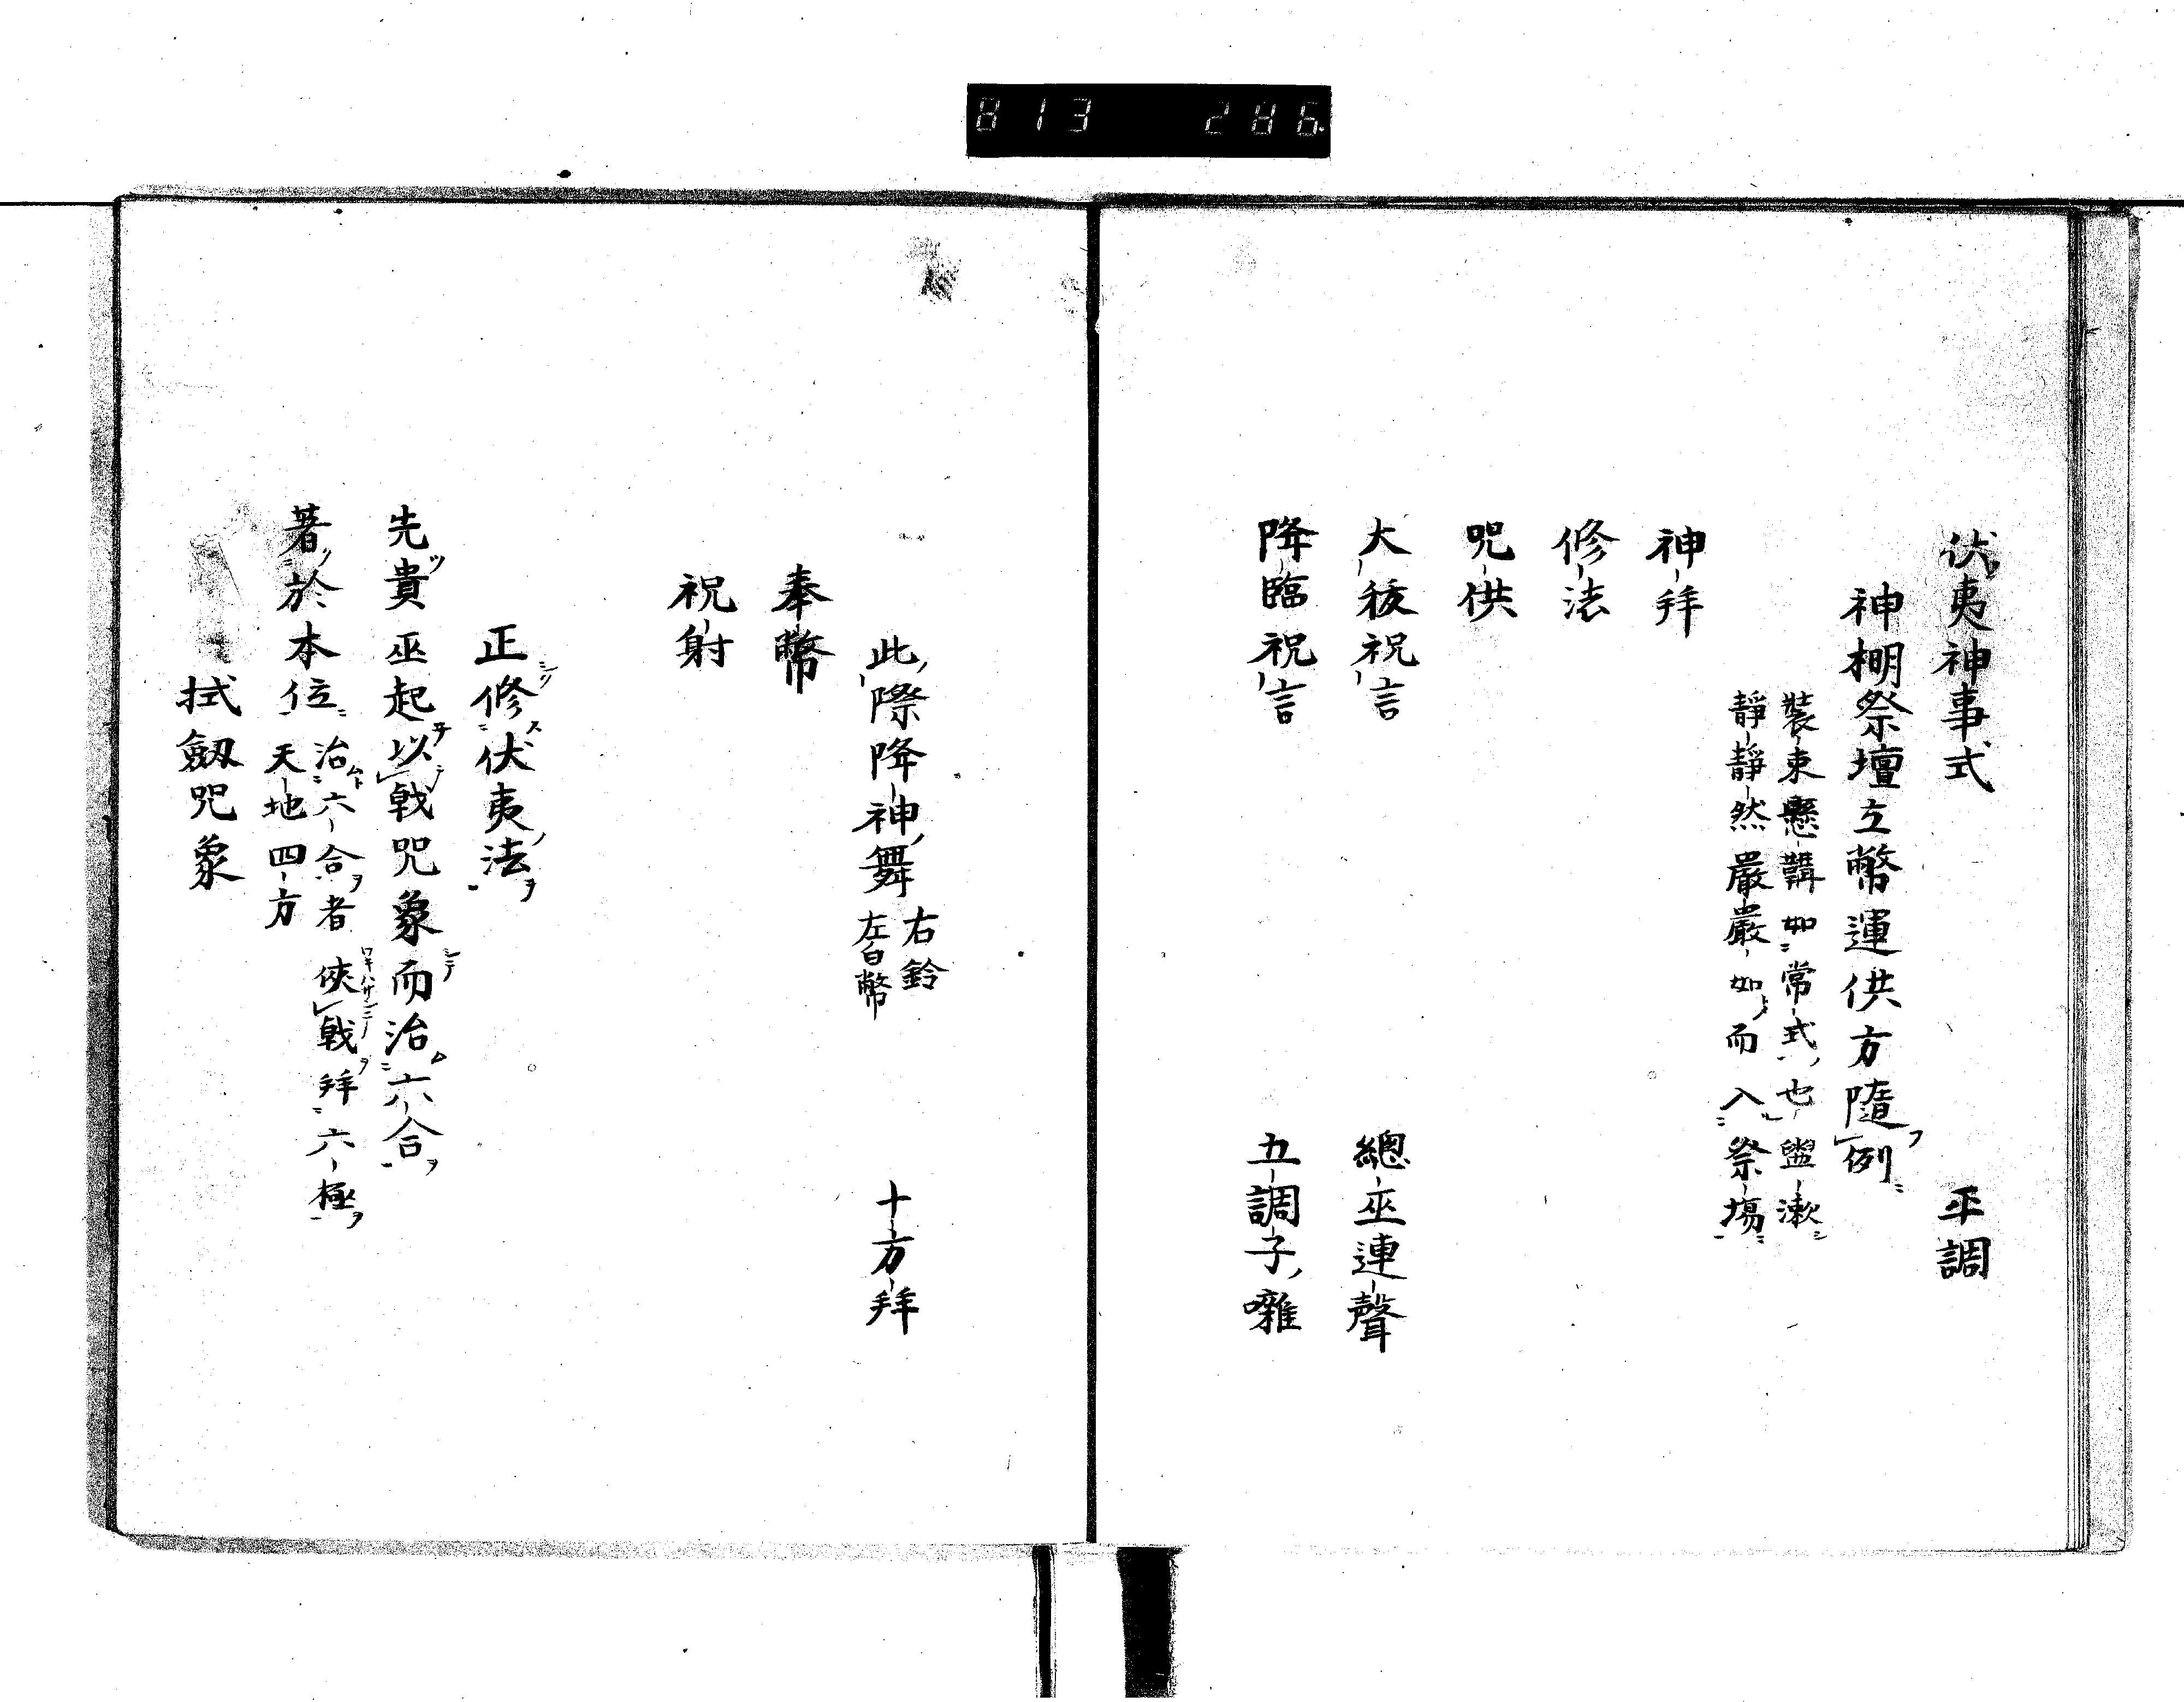 813 286
伏夷神事式 平調
神棚祭壇立幣運供方隨例
裝束懸鞲如常式也盥漱
靜靜然嚴嚴如而入祭場
神拜
修法
咒供
大祓祝言 總巫連聲
降臨祝言 五調子囃
此際降神舞 右鈴 左白幣 十方拜
奉幣
祝射
正修伏夷法
先貴巫起以戟咒象而治六合
著於本位 治六合者俠戟拜六極
天地四方
拭劔咒象